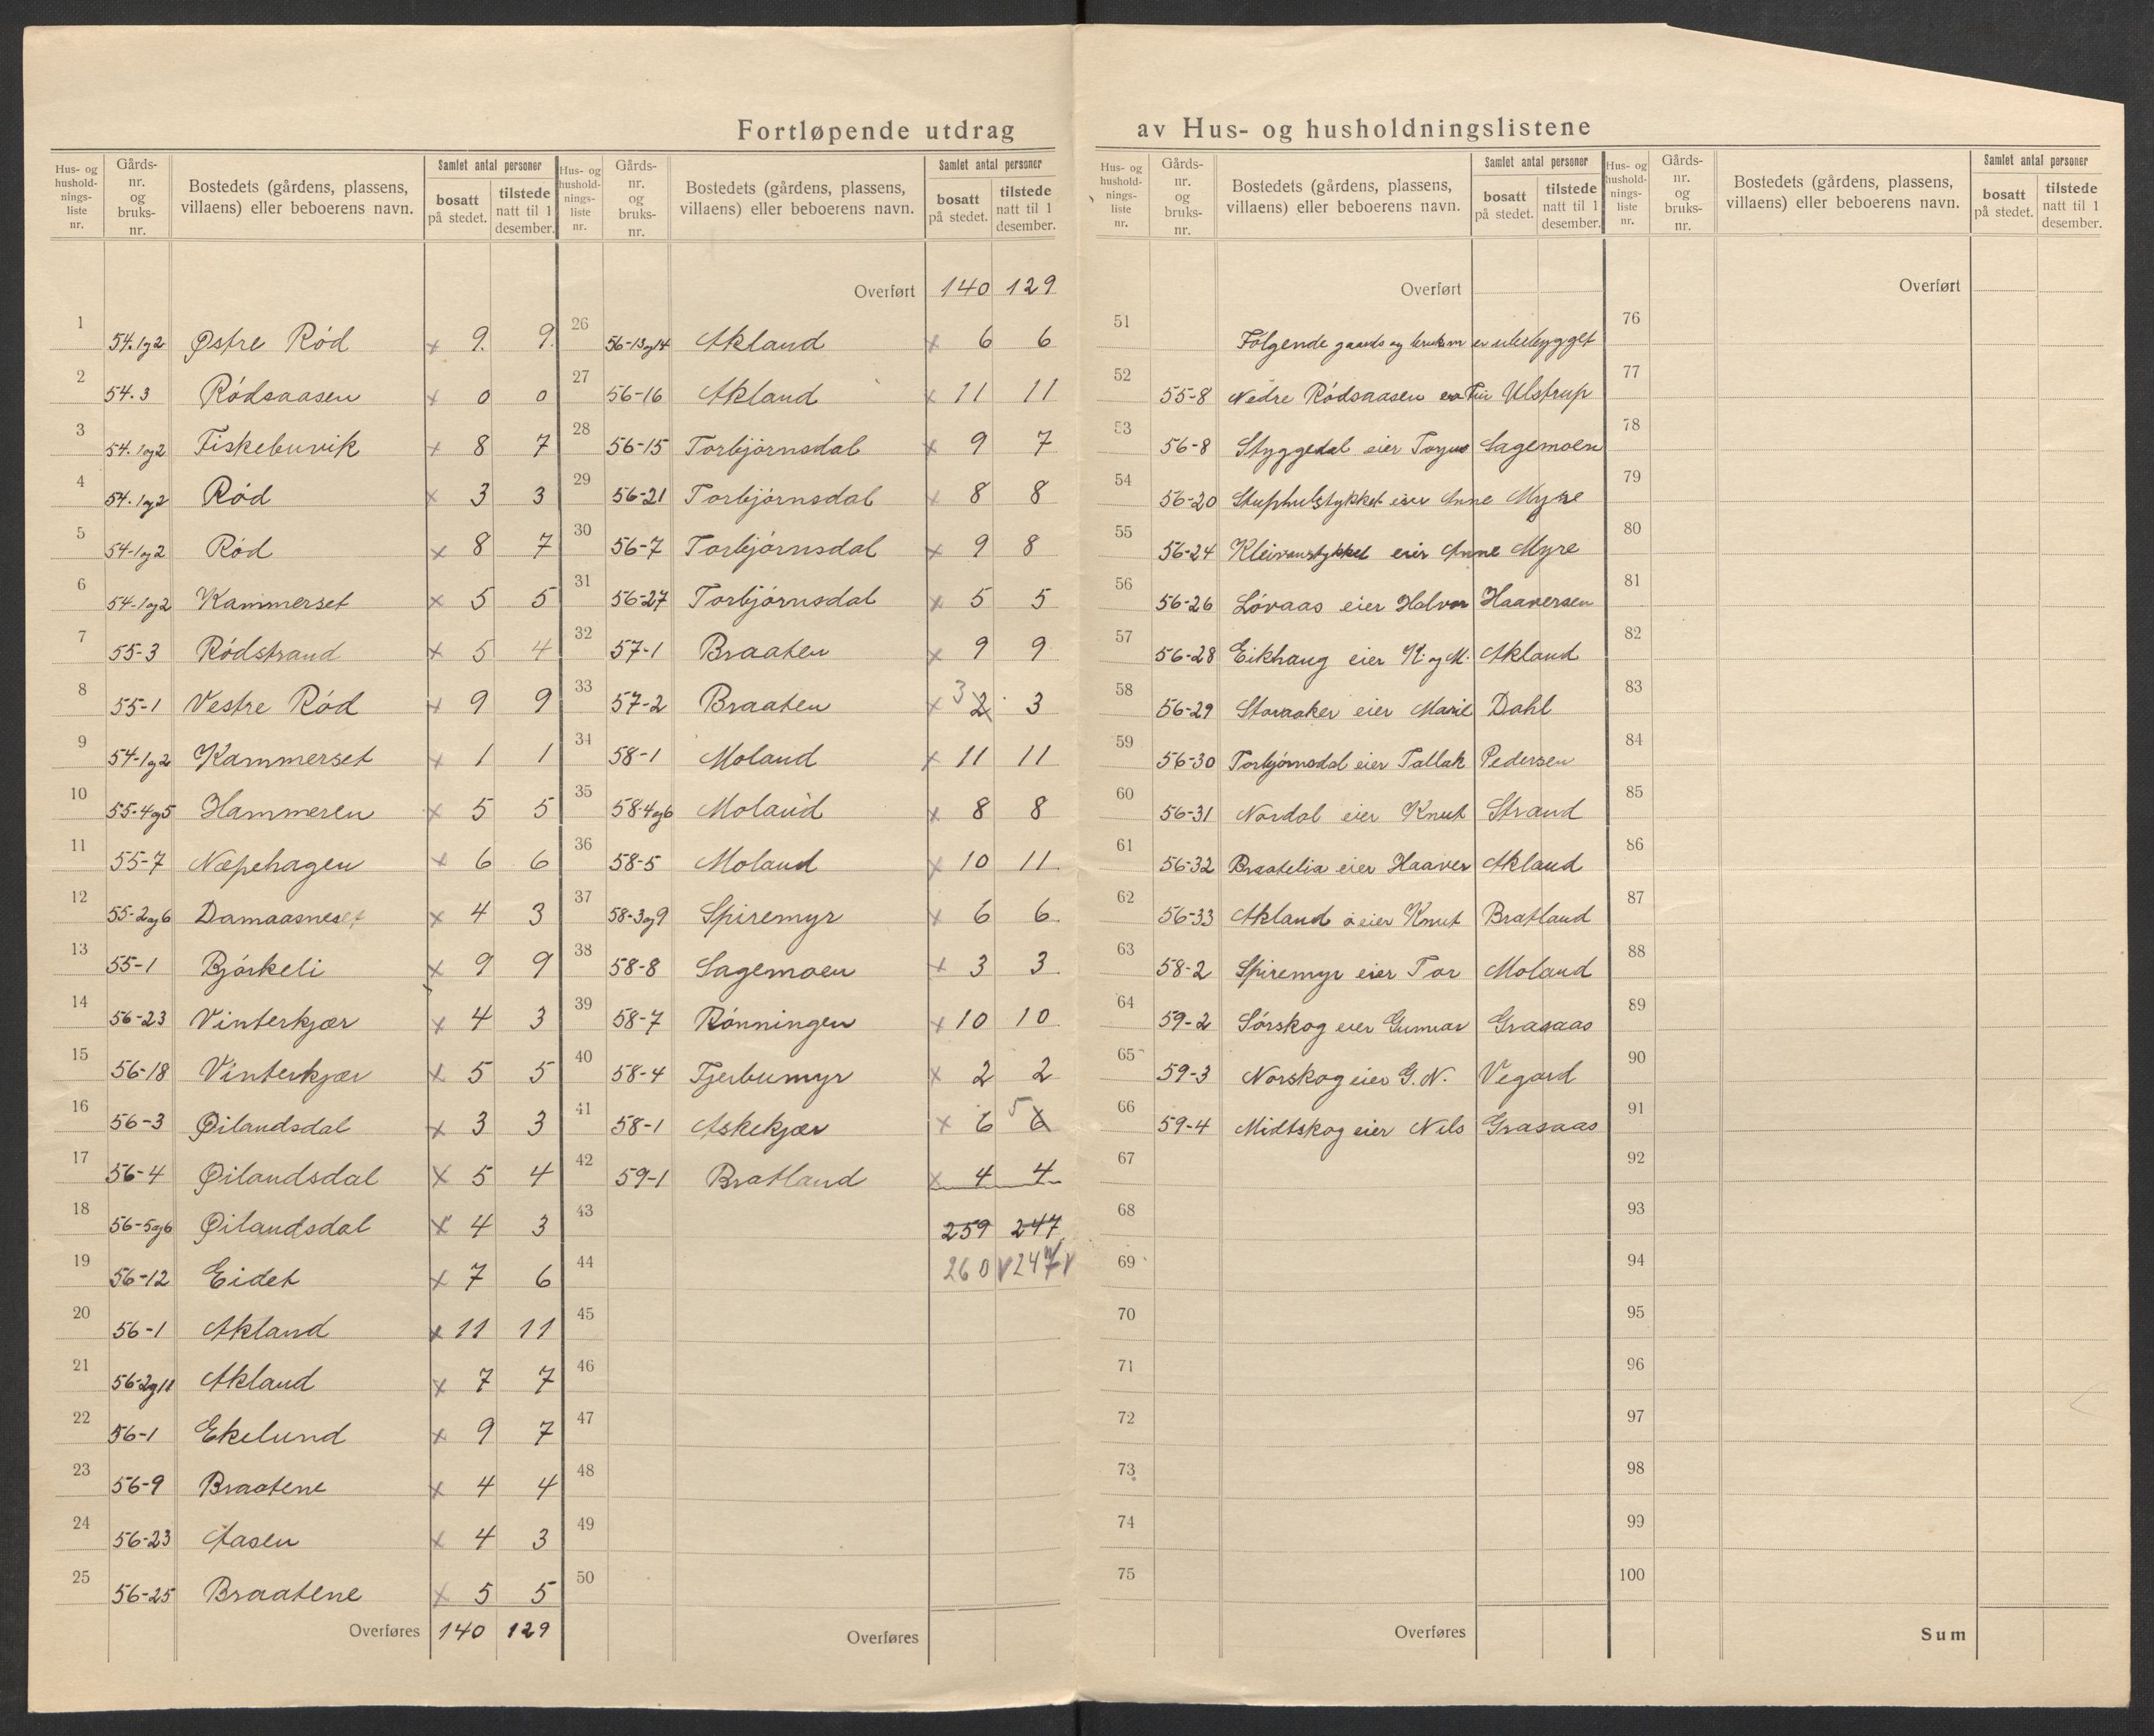 Fortløpende utdrag av Hus- og husholdningslistene
Hus- og hushold-nings-liste nr. | Gårds-nr. og bruks-nr. | Bostedets (gårdens, plassens, villaens) eller beboerens navn. | Samlet antal personer | bosatt på stedet. | tilstede natt til 1 desember.
1 54.1og2 Østre Rød x 9. 9.
2 54.3 Rødsaasen x 0 0
3 54.1og2 Fiskebuvik x 8 7
4 54.1og2 Rød x 3 3
5 54-1og2 Rød x 8 7
6 54-1og2 Kammerset x 5 5
7 55-3 Rødstrand x 5 4
8 55-1 Vestre Rød x 9 9
9 54-1og2 Kammerset x 1 1
10 55-4og5 Hammeren x 5 5
11 55-7 Næpehagen x 6 6
12 55-2og6 Damaasneset x 4 3
13 55-1 Bjørkeli x 9 9
14 56-23 Vinterkjær x 4 3
15 56-18 Vinterkjær x 5 5
16 56-3 Øilandsdal x 3 3
17 56-4 Øilandsdal x 5 4
18 56-5og6 Øilandsdal x 4 3
19 56-12 Eidet x 7 6
20 56-1 Akland x 11 11
21 56-2og11 Akland x 7 7
22 56-1 Ekelund x 9 7
23 56-9 Braatene x 4 4
24 56-23 Aasen x 4 3
25 56-25 Braatene x 5 5
Overføres 140 129
Hus- og hushold-nings-liste nr. | Gårds-nr. og bruks-nr. | Bostedets (gårdens, plassens, villaens) eller beboerens navn. | Samlet antal personer | bosatt på stedet. | tilstede natt til 1 desember.
Overført 140 129
26 56-13og14 Akland x 6 6
27 56-16 Akland x 11 11
28 56-15 Torbjørnsdal x 9 7
29 56-21 Torbjørnsdal x 8 8
30 56-7 Torbjørnsdal x 9 8
31 56-27 Torbjørnsdal x 5 5
32 57-1 Braaten x 9 9
33 57-2 Braaten x 3 2 3
34 58-1 Moland x 11 11
35 58-4og6 Moland x 8 8
36 58-5 Moland x 10 11
37 58-3og9 Spiremyr x 6 6
38 58-8 Sagemoen x 3 3
39 58-7 Rønningen x 10 10
40 58-4 Tjerbumyr x 2 2
41 58-1 Askekjær x 6 5 6
42 59-1 Bratland x 4 4
43 259 247
44 260 247
45
46
47
48
49
50
Overføres
Hus- og hushold-nings-liste nr. | Gårds-nr. og bruks-nr. | Bostedets (gårdens, plassens, villaens) eller beboerens navn. | Samlet antal personer | bosatt på stedet. | tilstede natt til 1 desember.
Overført
51 Følgende gaards og bruksnr er ubebygget
52 55-8 Nedre Rødsaasen Ulstrup
53 56-8 Styggedal eier Sagemoen
54 56-20 eier Anne Myre
55 56-24 eier Anne Myre
56 56-26 Løvaas eier Halvor Haaversen
57 56-28 Eikhaug eier K. og M. Akland
58 56-29 Storaaker eier Marie Dahl
59 56-30 Torbjørnsdal eier Tallak Pedersen
60 56-31 Nordal eier Knut Strand
61 56-32 Braatelia eier Haaver Akland
62 56-33 Akland eier Knut Bratland
63 58-2 Spiremyr eier Tor Moland
64 59-2 Sørskog eier Gunnar Grasaas
65 59-3 Norskog eier G. N. Vegard
66 59-4 Midtskog eier Nils Grasaas
67
68
69
70
71
72
73
74
75
Overføres
Hus- og hushold-nings-liste nr. | Gårds-nr. og bruks-nr. | Bostedets (gårdens, plassens, villaens) eller beboerens navn. | Samlet antal personer | bosatt på stedet. | tilstede natt til 1 desember.
Overført
76
77
78
79
80
81
82
83
84
85
86
87
88
89
90
91
92
93
94
95
96
97
98
99
100
Sum